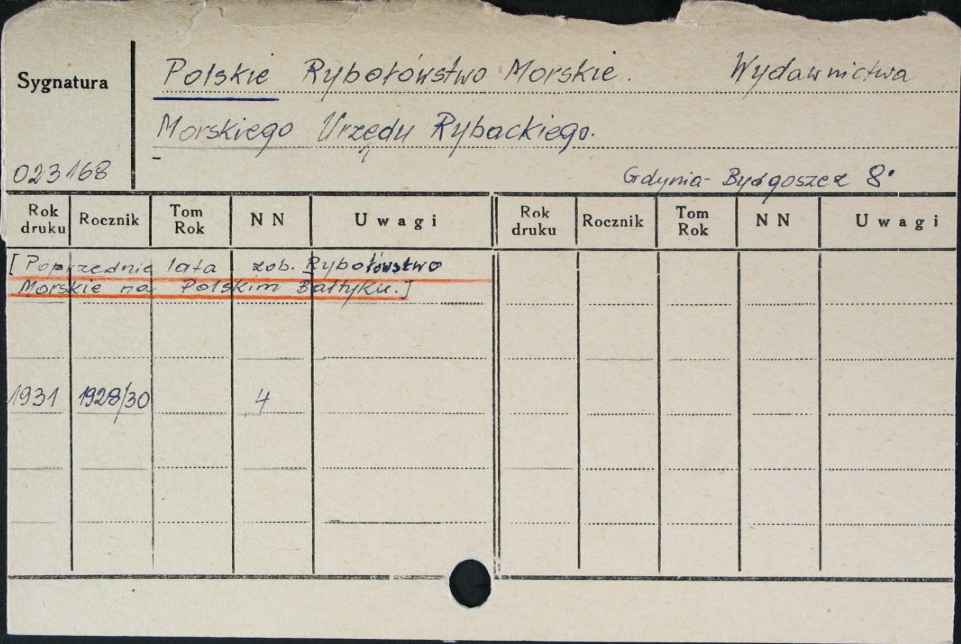 Sygnatura
Polskie Rybołówstwo Morskie. Wydawnictwa
Morskiego Urzędu Rybackiego.
023168
Gdynia-Bydgoszcz 8°
Rok druku Rocznik Tom Rok NN Uwagi Rok druku Rocznik Tom Rok NN Uwagi
[Poprzednie lata zob. Rybołówstwo
Morskie na Polskim Bałtyku.]
1931 1928/30 4